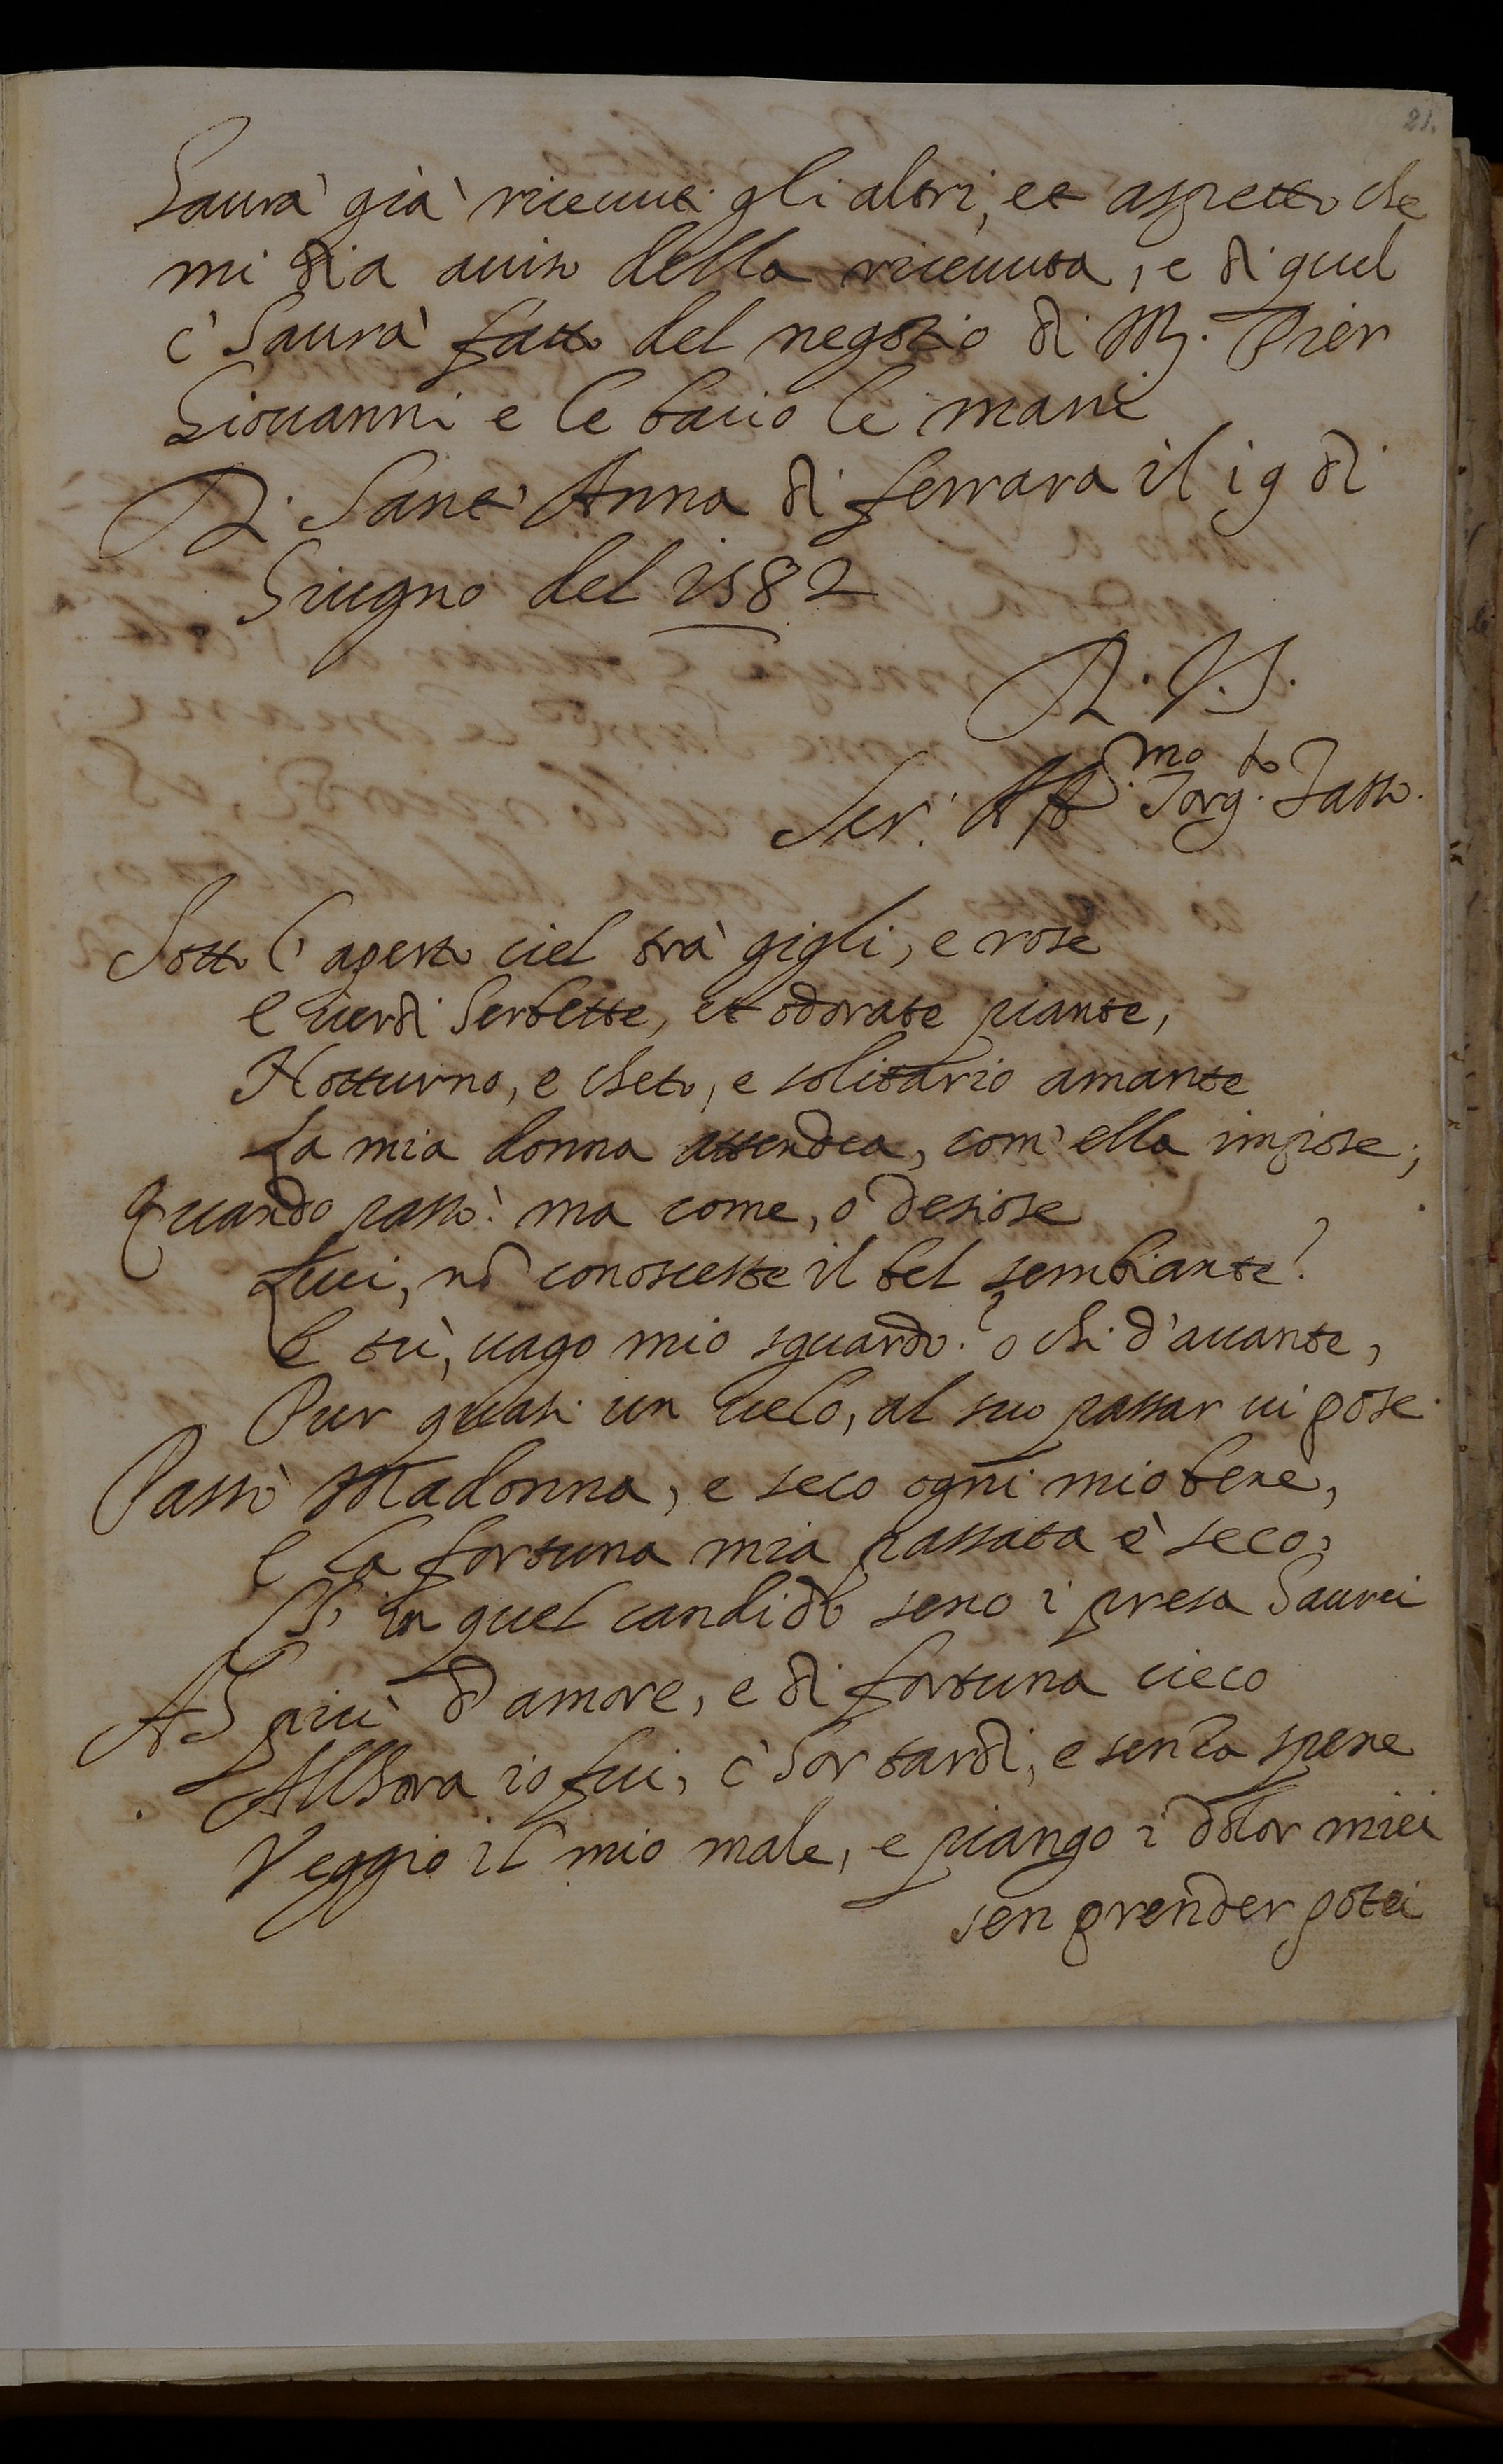 21.
haurà già riceuuti gli altri, et aspetto che
mi dia auiso della riceuuta, e di quel
c'haurà fatto del negotio di M. Pier
Giouanni e le bacio le mani
Di Sant'Anna di ferrara il 19 di
Giugno del 1582
D. V. S.
Ser. Aff.mo Torq.to Tasso.
Sotto l'aperto ciel trà gigli, e rose
E uerdi herbette, et odorate piante,
Notturno, e cheto, e solitario amante
La mia donna attendea, com'ella impose;
Quando passò: ma come, o desiose
Luci, nõ conosceste il bel sembiante?
E tù, uago mio sguardo? o chi d'auante,
Pur quasi un uelo, al suo passar ui pose.
Passò Madonna, e seco ogni mio bene,
E la fortuna mia passata è seco,
Ch'in quel candido seno i presa haurei
Ah più d'amore, e di fortuna cieco
Allhora io fui, c'hor tardi, e senza spene
Veggio il mio male, e piango i dolor miei
sen prender potei